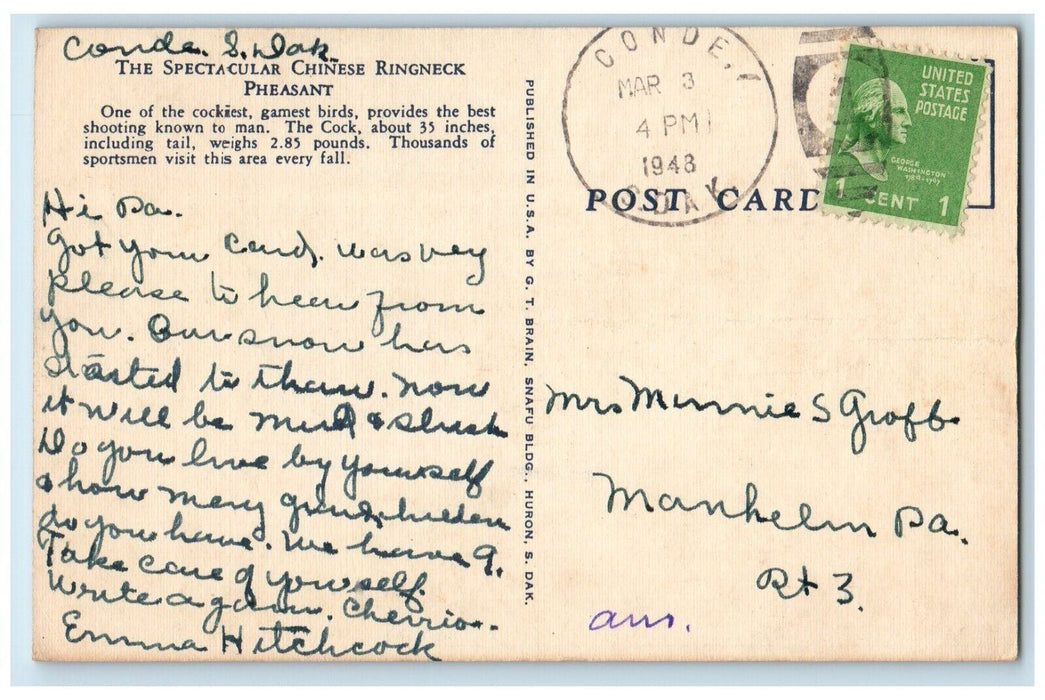 Conde. S. Dak.
THE SPECTACULAR CHINESE RINGNECK
PHEASANT
One of the cockiest, gamest birds, provides the best
shooting known to man. The Cock, about 35 inches,
including tail, weighs 2.85 pounds. Thousands of
sportsmen visit this area every fall.
Hi Pa.
Got your card. was very
please to hear from
you. Our snow has
started to thaw. now
it will be mud & slush
Do you live by yourself
& how meny grandchildern
do you have. We have 9.
Take care of yourself.
Write again. Cheerio.
Emma Hitchcock
PUBLISHED IN U.S.A. BY G. T. BRAIN, SNAFU BLDG., HURON, S. DAK.
CONDE,
MAR 3
4 PM
1948
S. DAK
UNITED
STATES
POSTAGE
GEORGE
WASHINGTON
1789-1797
1 CENT 1
POST CARD
Mrs Minnie S Groff
Manheim Pa.
Rt 3.
ans.